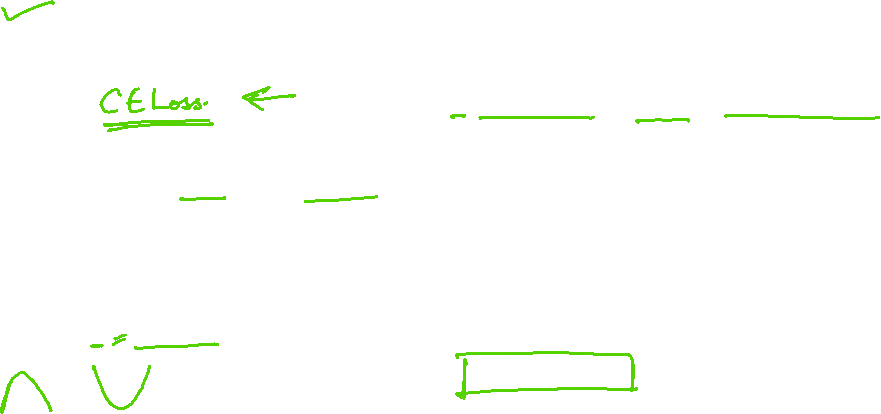 CE Loss.